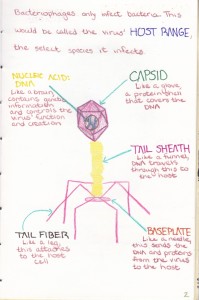 Bacteriophages only infect bacteria. This
would be called the virus' HOST RANGE,
the select species it infects.
NUCLEIC ACID:
DNA
Like a brain,
contains genetic
information
and controls the
virus' function
and creation
CAPSID
Like a glove,
a protein shell
that covers the
DNA
TAIL SHEATH
Like a tunnel,
DNA travels
through this to
the host
TAIL FIBER
Like a leg,
this attaches
to the host
cell
BASEPLATE
Like a needle,
this sends the
DNA and proteins
from the virus
to the host
2